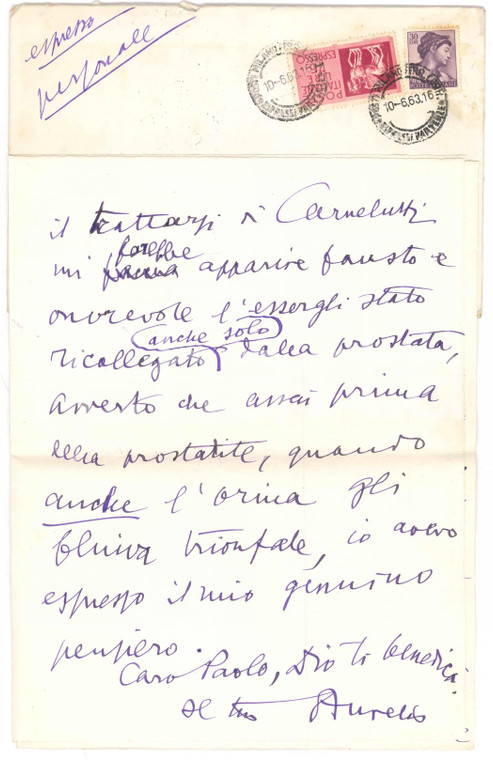 espresso
personale
30
POSTE
ITALIANE
ESPRESSO
10-6.63.16
10-6.63.16
il trattarsi di Carnelutti
farebbe
mi apparire fausto e
onorevole l'essergli stato
(anche solo)
ricollegato dalla prostata,
avverto che assai prima
della prostatite, quando
anche l'orina gli
fluiva trionfale, io avevo
espresso il mio genuino
pensiero.
Caro Paolo, Dio ti benedica.
il tuo Aurelio